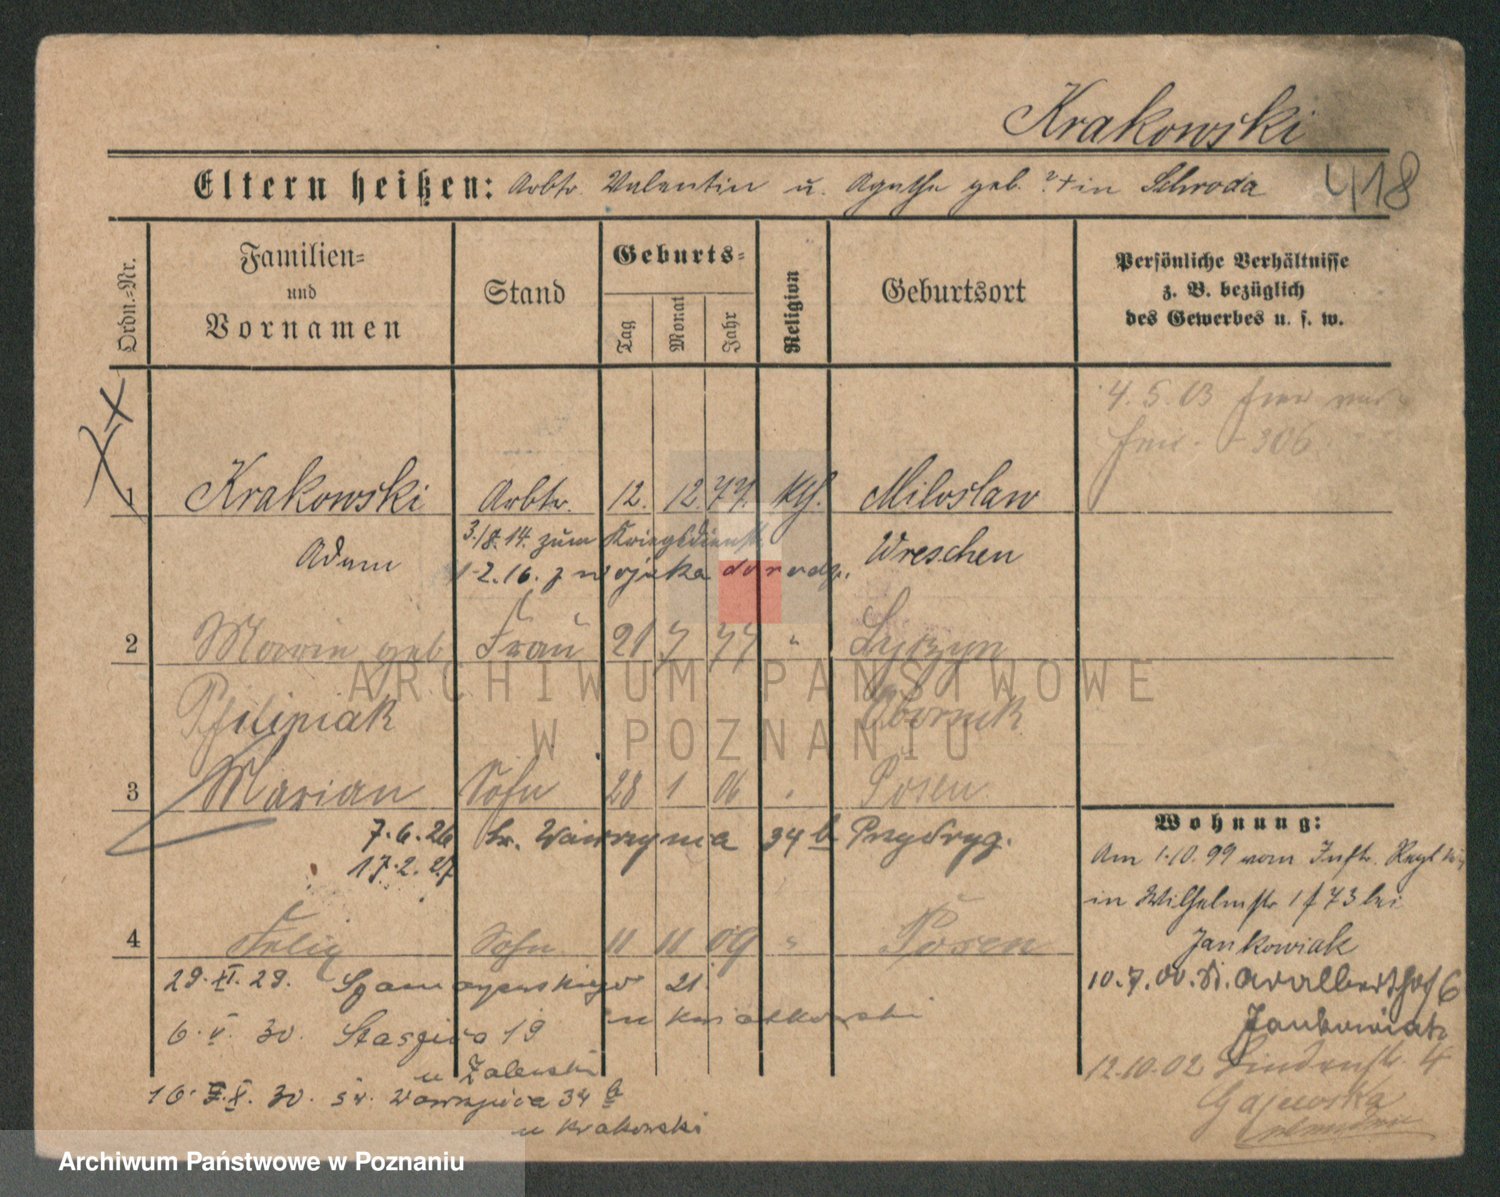 Krakowski
Eltern heißen: Arbtr. Valentin u. Agathe geb. ? + in Schroda 418
Ordn.-Nr.
Familien- und Vornamen
Stand
Geburts-
Tag Monat Jahr
Religion
Geburtsort
Persönliche Verhältnisse
z. B. bezüglich
des Gewerbes u. s. w.
4. 5. 03
306
1 Krakowski Arbtr. 12. 12. 77. kth. Miloslaw
3./8. 14. zum Kriegsdienst
Adam Wreschen
1-2. 16. z wojska
2 Marie geb Frau 21 7 77 "
Filipiak Obornik
3 Marian Sohn 28 1 06 " Posen
7.6.26 św. Wawrzyńca 34 b Przydryg.
17.2.27
Wohnung:
Am 1.10.99 vom Inftr. Regt
in Wilhelmstr 17 73 bei
Jankowiak
4 Felix Sohn 11 11 09 " Posen
10.7.00. St. Adalberthof 6
Jankowiak
12.10.02 Lindenstr. 4
Gajewska
29. XI. 29. Szamarzewskiego 21.
u Kwiatkowski
6. V. 30. Staszica 19
u Zalewski
16. X. 30. św. Wawrzyńca 34 b
u Krakowski
ARCHIWUM PAŃSTWOWE
W POZNANIU
Archiwum Państwowe w Poznaniu